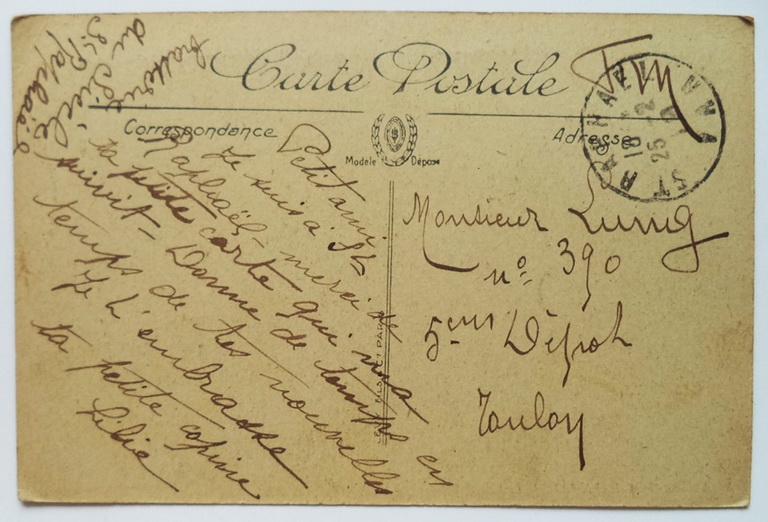 Carte Postale
Correspondance
Adresse
Modèle Déposé
ST RAPHAEL
18
25
F M
Petit ami
Je suis à St
Raphaël, merci de
ta petite carte qui m'a
suivit - Donne de temps en
temps de tes nouvelles
Je t'embrasse
ta petite copine
Lilie
du Siècle
St Raphaël
Monsieur Lunig
n° 390
5ème Dépôt
Toulon